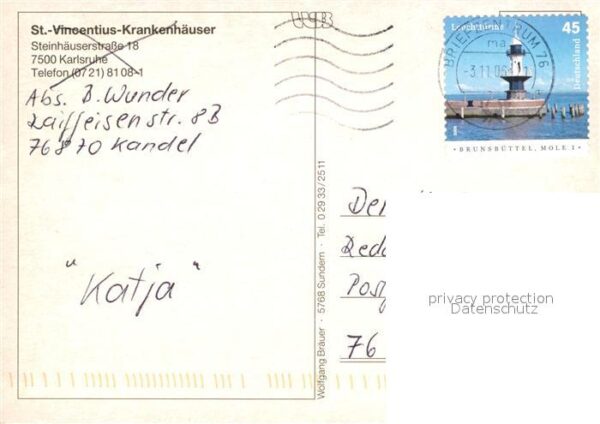 St.-Vincentius-Krankenhäuser
Steinhäuserstraße 18
7500 Karlsruhe
Telefon (0721) 8108-1
Abs. B. Wunder
Raiffeisenstr. 8B
76870 Kandel
"Katja"
Wolfgang Bräuer · 5768 Sundern · Tel. 0 29 33 / 25 11
Leuchttürme 45
Deutschland
BRIEFZENTRUM 76
ma
-3.11.06
· BRUNSBÜTTEL, MOLE 1 ·
Reda
Post
76
privacy protection
Datenschutz